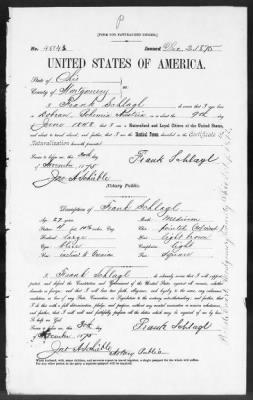 P
[FORM FOR NATURALIZED CITIZEN.]
No. 48743 Issued Dec 2 1875
UNITED STATES OF AMERICA.
State of Ohio
County of Montgomery
I Frank Schlagl do swear that I was born
Bohemia Austria on or about the 9th day
June 1848 that I am a Naturalized and Loyal Citizen of the United States,
and about to travel abroad; and further, that I am the Identical Person described in the Certificate of
Naturalization herewith presented.
Sworn to before me, this 30th
of November 1875
Frank Schlagl
Jno. A. Schäible
Notary Public.
Description of Frank Schlagl
Age: 27 years Mouth: Medium
Stature: Chin:
Forehead: Large Hair: light brown
Eyes: Blue Complexion: light
Nose: Face: Square
I Frank Schlagl do swear that I will support,
protect, and defend the Constitution and Government of the United States against all enemies, whether
domestic or foreign; and that I will bear true faith, allegiance, and loyalty to the same, any ordinance,
resolution, or law of any State, Convention, or Legislature to the contrary notwithstanding; and further, that
I do this with a full determination, pledge, and purpose, without any mental reservation or evasion whatsoever;
and further, that I will well and faithfully perform all the duties which may be required of me by law.
So help me God.
Sworn to before me, this 30th
of November 1875
Frank Schlagl
Jno. A. Schäible
Notary Public